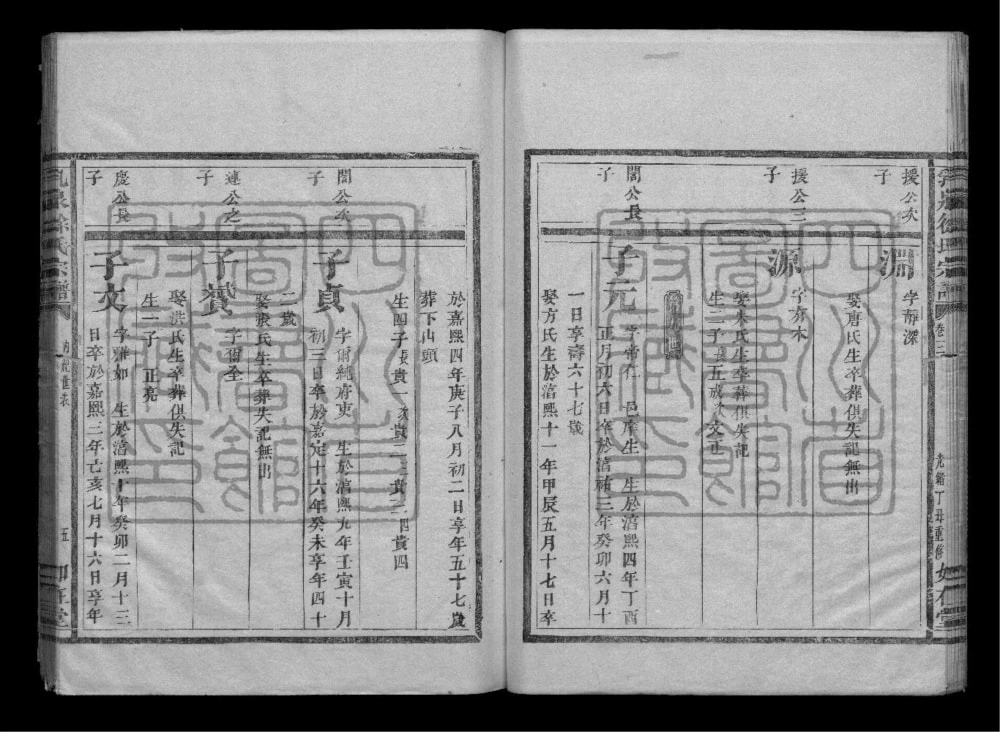 援公次
子
淵
字靜深
娶唐氏生卒葬俱失記無出
援公三
子
源
字方木
娶朱氏生卒葬俱失記
生二子長五歲次文正
閣公長
子
子元
字帝仁 邑庠生 生於淳熙四年丁酉
正月初六日卒於淳祐三年癸卯六月十
一日享壽六十七歲
娶方氏生於淳熙十一年甲辰五月十七日卒
徐氏宗譜
卷三
光緒丁丑重修
於嘉熙四年庚子八月初二日享年五十七歲
葬下山頭
生四子長貴一次貴二三貴三四貴四
閣公次
子
子貞
字爾純府吏 生於淳熙九年壬寅十月
初三日卒於嘉定十六年癸未享年四十
二歲
娶張氏生卒葬失記無出
連公之
子
子贇
字爾全
娶洪氏生卒葬俱失記
生一子 正亮
慶公長
子
子文
字雅如 生於淳熙十年癸卯二月十三
日卒於嘉熙三年己亥七月十六日享年
徐氏宗譜
五
四川省圖書館收藏印